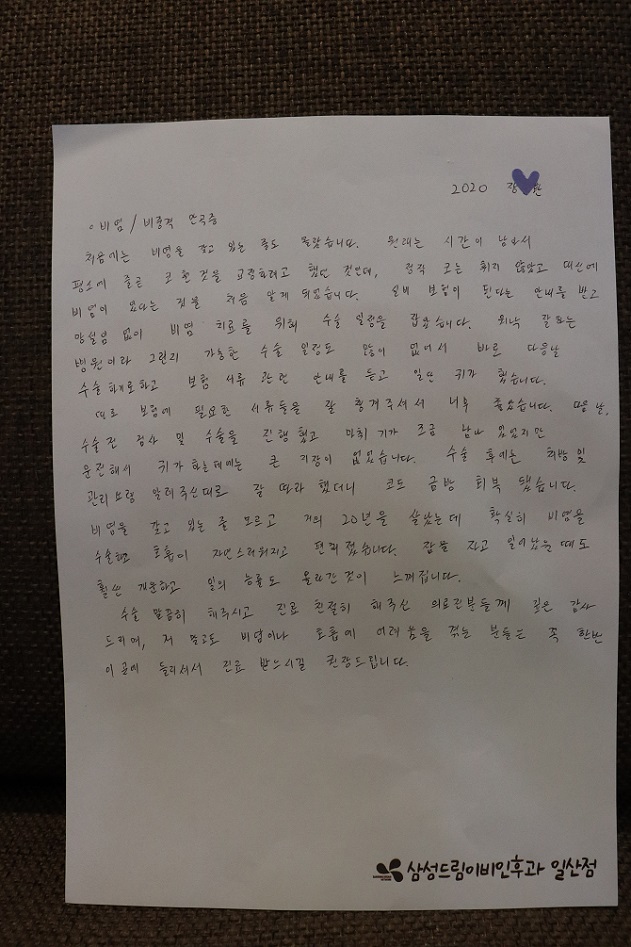 2020 장 관
◦ 비염 / 비중격 만곡증
처음에는 비염을 갖고 있는 줄도 몰랐습니다. 원래는 시간이 남아서
평소에 줄곧 코 한 것을 교정하려고 했던 것인데, 정작 코는 휘지 않았고 대신에
비염이 있다는 것을 처음 알게 되었습니다. 실비 보험이 된다는 안내를 받고
망설임 없이 비염 치료를 위해 수술 일정을 잡았습니다. 워낙 잘하는
병원이라 그런지 가능한 수술 일정도 많이 없어서 바로 다음날
수술하기로하고 보험 서류 관련 안내를 듣고 일단 귀가 했습니다.
따로 보험에 필요한 서류들을 잘 챙겨주셔서 너무 좋았습니다. 다음 날,
수술 전 검사 및 수술을 진행했고 마취기가 조금 남아 있었지만
운전해서 귀가 하는데에는 큰 지장이 없었습니다. 수술 후에는 처방 및
관리 요령 알려주신대로 잘 따라 했더니 코도 금방 회복 됐습니다.
비염을 갖고 있는 줄 모르고 거의 20년을 살았는데 확실히 비염을
수술하고 호흡이 자연스러워지고 편해졌습니다. 잠을 자고 일어났을 때도
훨씬 개운하고 일의 능률도 올라간 것이 느껴집니다.
수술 말끔히 해주시고 진료 친절히 해주신 의료진분들께 깊은 감사
드리며, 저 말고도 비염이나 호흡에 어려움을 겪는 분들은 꼭 한번
이 곳에 들리셔서 진료 받으시길 권장드립니다.
삼성드림이비인후과 일산점